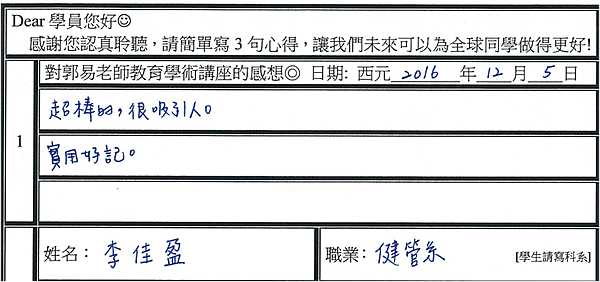 Dear 學員您好☺
感謝您認真聆聽，請簡單寫 3 句心得，讓我們未來可以為全球同學做得更好!
對郭易老師教育學術講座的感想◎ 日期: 西元 2016 年 12 月 5 日
1
超棒的，很吸引人。
實用好記。
姓名： 李佳盈 職業： 健管系 [學生請寫科系]